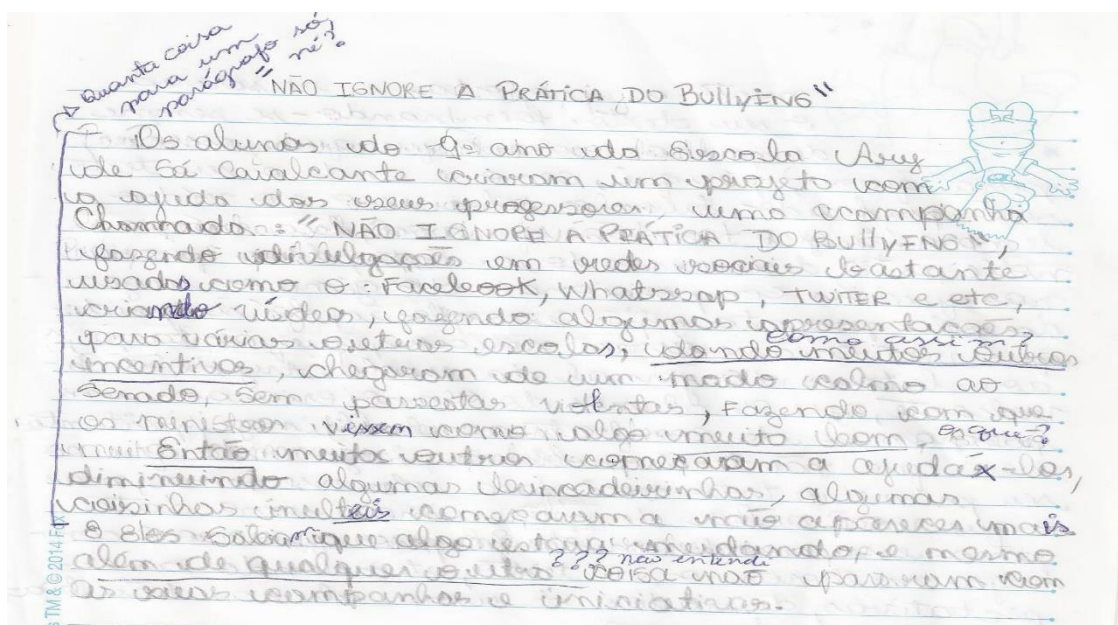 Quanta coisa
para um
parágrafo só,
né?
"NÃO IGNORE A PRÁTICA DO BullyING"
Os alunos do 9º ano da Escola Ary
de Sá Cavalcante criaram um projeto com
a ajuda dos seus professores, uma campanha
Chamada: "NÃO IGNORE A PRÁTICA DO BullyING",
fazendo divulgações em redes sociais bastante
usadas como o: Facebook, Whatssap, TWITER e etc,
criando vídeos, fazendo algumas apresentações
como assim?
para várias outras escolas, dando muitos outros
incentivos, chegaram de um modo calmo ao
Senado, sem violentas, Fazendo com que
os ministros vissem como algo muito bom
os que?
Então muitos outros começaram a ajudá-los,
diminuindo algumas brincadeirinhas, algumas
coisinhas inúteis começaram a não aparecer mais
e Eles Sabiam que algo estava mudando, e mesmo
??? não entendi
além de qualquer outra coisa não pararam com
as suas campanhas e iniciativas.
s TM & © 2014 F